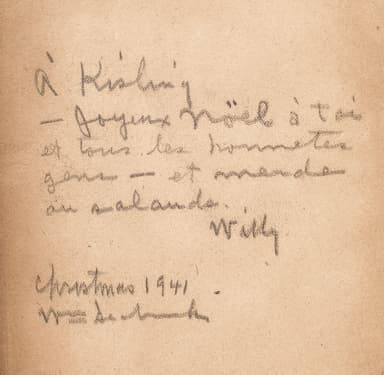 À Kisling
– Joyeux Nöel à toi
et tous les honnetes
gens – et merde
au salauds.
Willy
Christmas 1941.
Wm